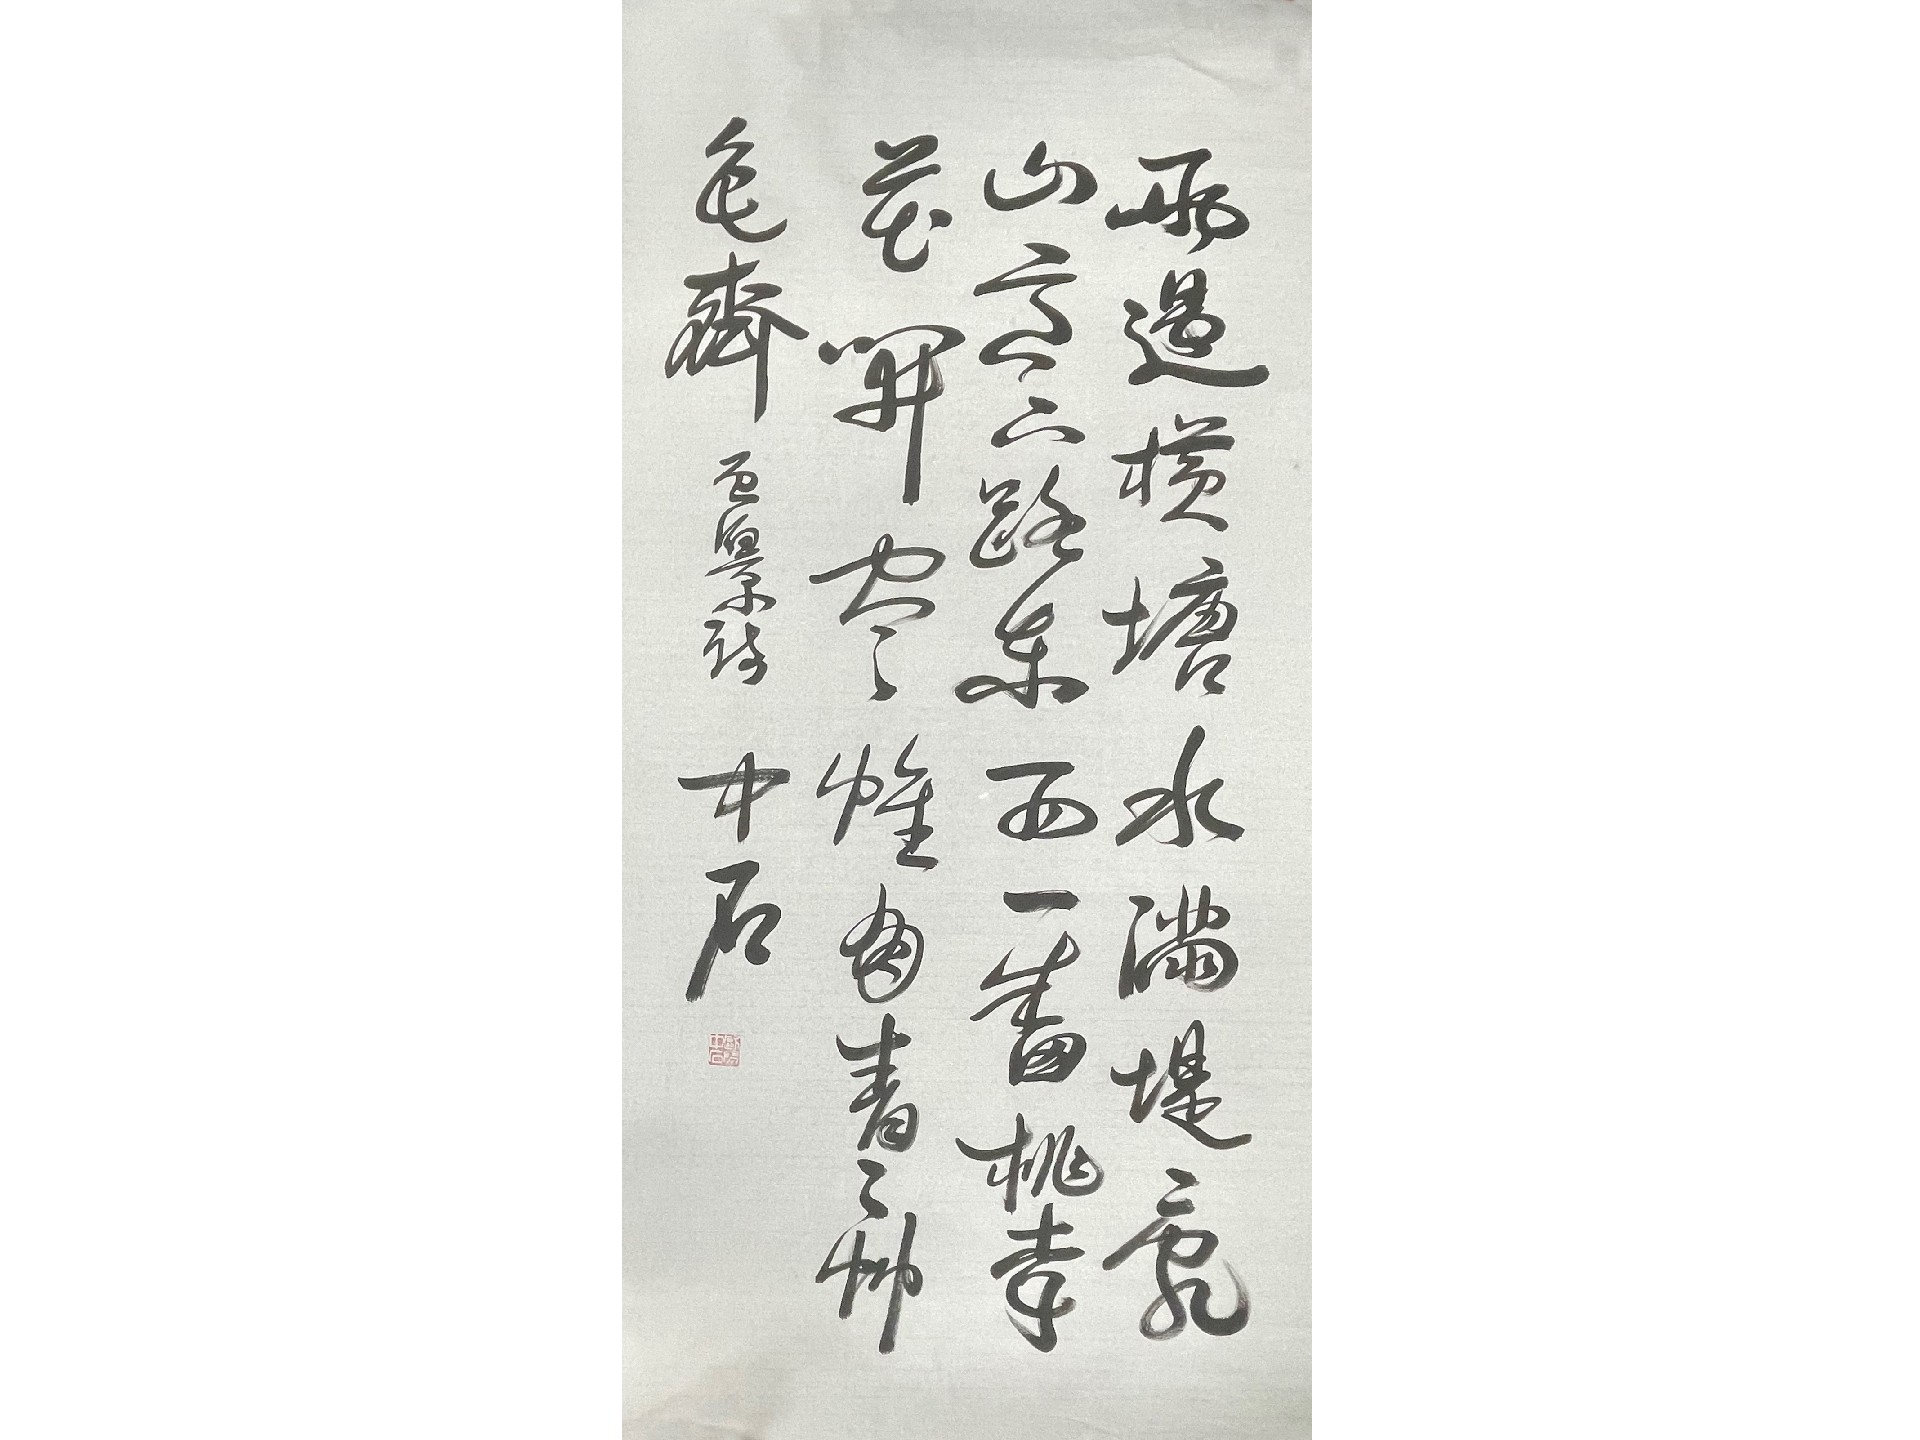 雨過橫塘水滿堤亂
山高下路東西一番桃李
花開盡惟有青〻艸
色齊 詩 中石